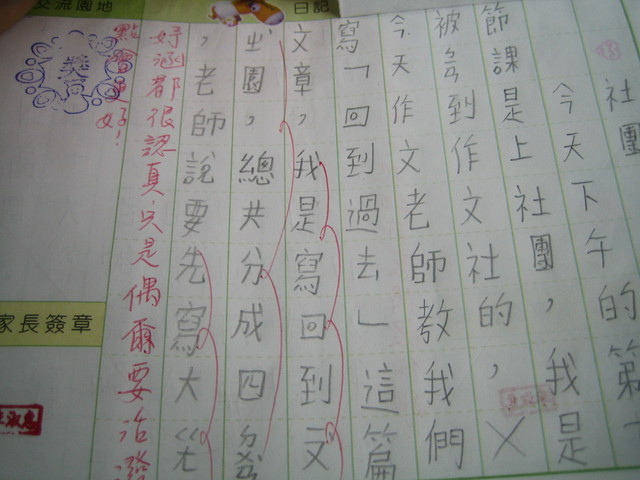 日記
社團
今天下午的第一
節課是上社團，我是
被分到作文社的，ㄨ
今天作文老師教我們
寫「回到過去」這篇
文章，我是寫回到
園，總共分成四
，老師說要先寫大ㄍㄤ
都很認真，只是偶爾要活潑
點會更好！
交流園地
家長簽章